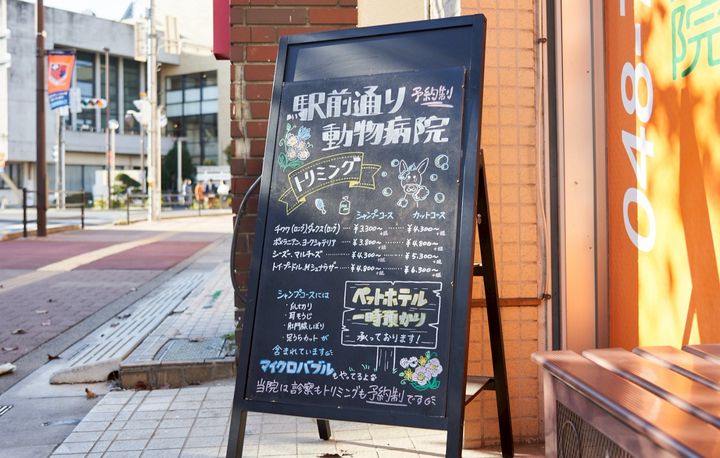 駅前通り 予約制
動物病院
トリミング
シャンプーコース カットコース
チワワ(ロング)ダックス(ロング) ‥‥ ¥3.300~ ‥‥ ¥4.300~
ポメラニアン、ヨークシャテリア ‥‥ ¥3.800~ ‥‥ ¥4.800~
シーズー、マルチーズ ‥‥ ¥4.300~ ‥‥ ¥5.300~
トイ・プードル、M.シュナウザー ‥‥ ¥4.800~ ‥‥ ¥6.300~
シャンプーコースには
・爪切り
・耳そうじ
・肛門腺しぼり
・足うらカット が
含まれています
ペットホテル
一時預かり
承っております!
マイクロバブルもやってるよ
当院は診察もトリミングも予約制です
048-7
院